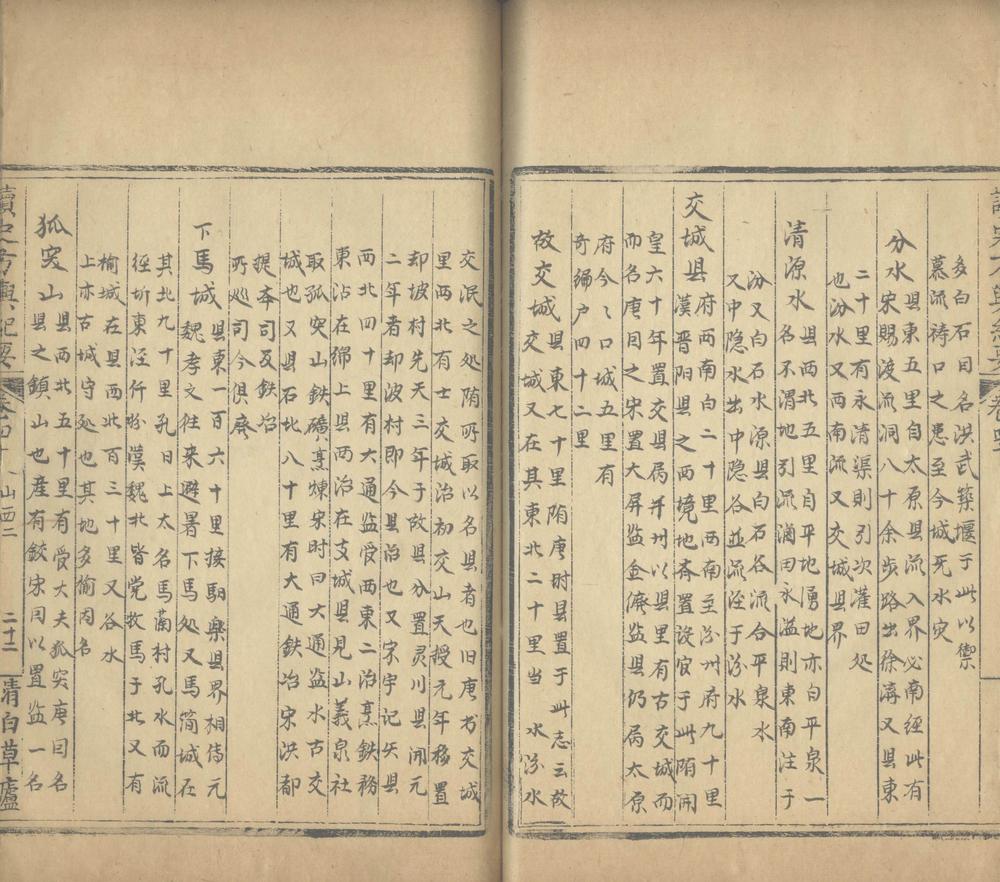 多白石因名洪武築堰于此以禦
慕流祷口之患至今城死水灾
分水县東五里自太原县流入界必南經此有
宋賜渡流洞八十余步路出徐溝又县東
二十里有永清渠則引次灌田处
也汾水又西南流又交城县界
清源水县西北五里自平地湧地亦白平泉一
名不渭地引流溉田永溢則東南注于
汾又白石水源县白石谷流合平泉水
又中隐水出中隐谷並流泾于汾水
交城县府西南白二十里西南主汾州府九十里
漢晋阳县之西境地斉置设官于此隋開
皇六十年置交县属并州以县里有古交城而
而名唐因之宋置大屏监金廃监县仍属太原
府今〻口城五里有
奇编户四十二里
故交城县東七十里隋唐时县置于此志云故
交城又在其東北二十里当 水汾水
交泯之处隋所取以名县者也旧唐书交城
里西北有士交城治初交山天授元年移置
却坡村先天三年于故县分置灵川县開元
二年者却波村即今县治也又宋宇记矢县
西北四十里有大通监受西東二治烹鉄務
東沾在绵上县西治在支城县見山義泉社
取孤突山鉄礦烹煉宋时曰大通监水古交
城也又县石北八十里有大通鉄冶宋洪都
提夲司及鉄冶
所巡司今俱廃
下馬城县東一百六十里接駒樂县界相傳元
魏孝文往来避暑下馬处又馬简城在
其北九十里孔日上太名馬蔺村孔水而流
徑圻東泾仟汾漢魏北皆党牧馬于北又有
榆城在县西北百三十里又谷水
上亦古城守处也其地多榆因名
狐突山县西北五十里有受大夫狐突唐曰名
县之鎮山也產有鉄宋因以置监一名
讀史方輿紀要 卷四十 山西二 二十二 清白草廬